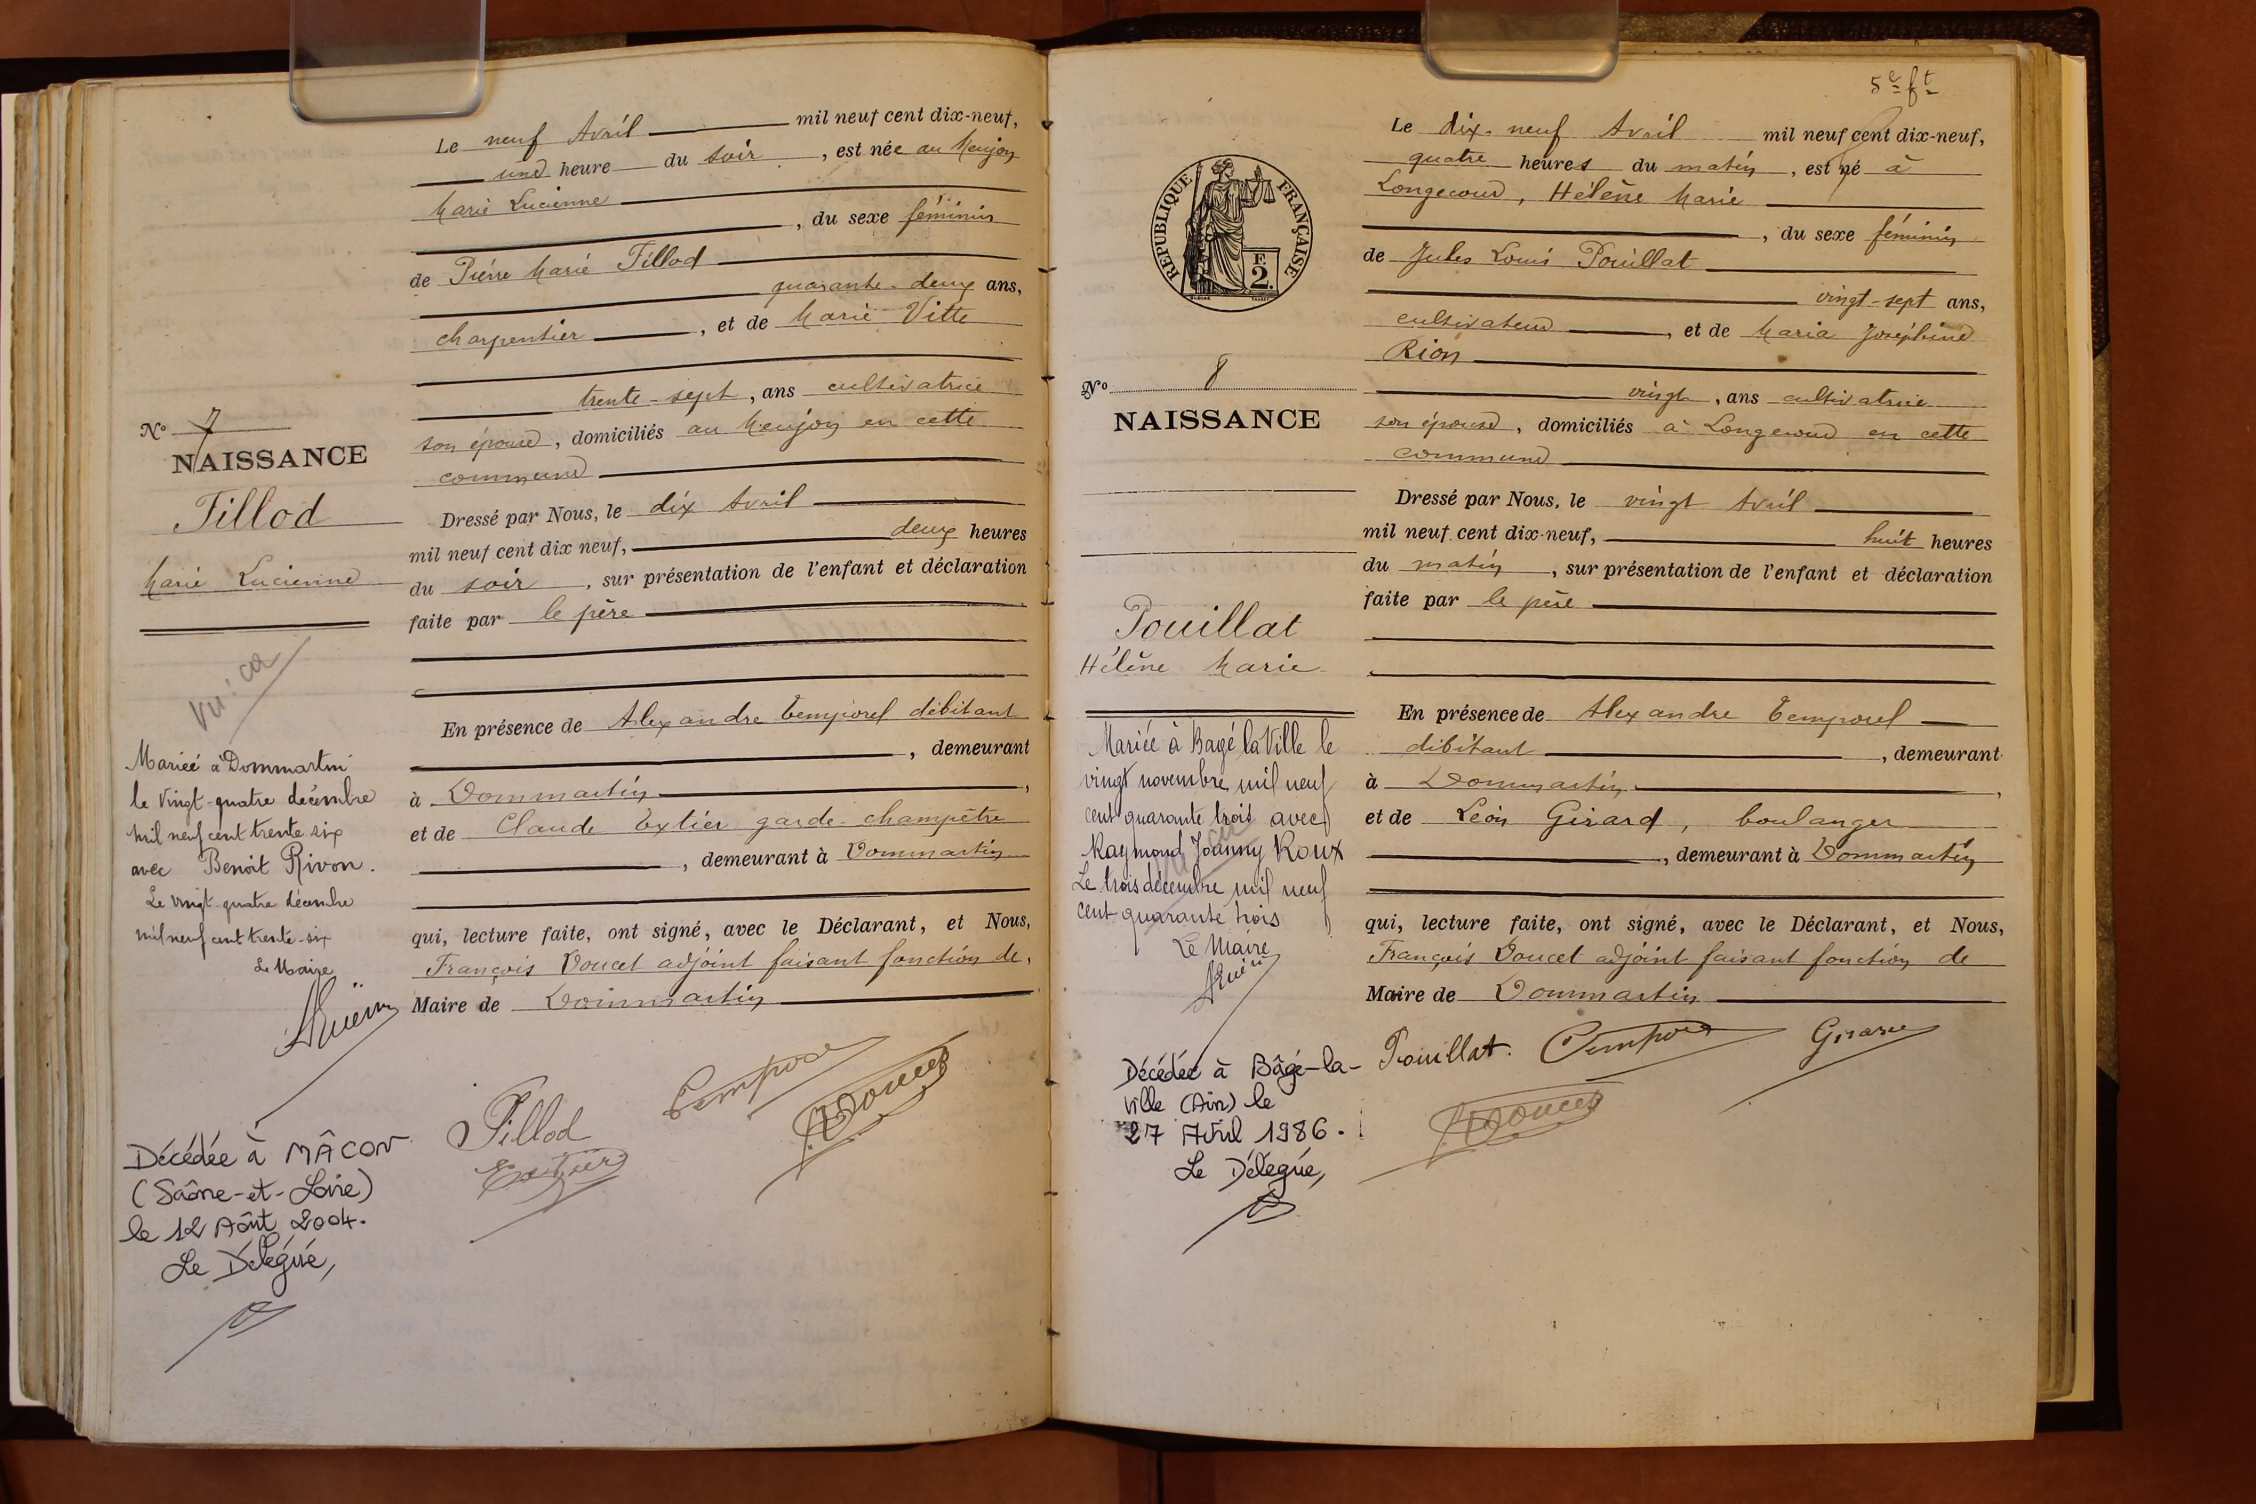 Le neuf Avril mil neuf cent dix-neuf,
une heure du soir, est née au Meujon
Marie Lucienne
, du sexe féminin
de Pierre Marie Tillod
quarante-deux ans,
charpentier, et de Marie Vitte
trente-sept, ans cultivatrice
son épouse, domiciliés au Meujon en cette
commune
Dressé par Nous, le dix Avril
mil neuf cent dix neuf, deux heures
du soir, sur présentation de l'enfant et déclaration
faite par le père
En présence de Alexandre Temporel débitant
, demeurant
à Dommartin,
et de Claude Extier garde-champêtre
, demeurant à Dommartin
qui, lecture faite, ont signé, avec le Déclarant, et Nous,
François Doucet adjoint faisant fonction de,
Maire de Dommartin
Tillod
Extier
No 7
NAISSANCE
Tillod
Marie Lucienne
Vu: ca
Mariée à Dommartin
le vingt-quatre décembre
mil neuf cent trente six
avec Benoit Rivon.
Le vingt-quatre décembre
mil neuf cent trente-six
Le Maire
Décédée à MÂCON
(Saône-et-Loire)
le 12 Août 2004.
Le Délégué,
5e ft
Le dix-neuf Avril mil neuf cent dix-neuf,
quatre heures du matin, est né à
Longecour, Hélène Marie
, du sexe féminin
de Jules Louis Pouillat
vingt-sept ans,
cultivateur, et de Maria Joséphine
Rion
vingt, ans cultivatrice
son épouse, domiciliés à Longecour en cette
commune
Dressé par Nous, le vingt Avril
mil neuf cent dix-neuf, huit heures
du matin, sur présentation de l'enfant et déclaration
faite par le père
En présence de Alexandre Temporel
débitant, demeurant
à Dommartin,
et de Léon Girard, boulanger
, demeurant à Dommartin
qui, lecture faite, ont signé, avec le Déclarant, et Nous,
François Doucet adjoint faisant fonction de
Maire de Dommartin
Pouillat.
RÉPUBLIQUE FRANÇAISE
F.
2.
No 8
NAISSANCE
Pouillat
Hélène Marie
Mariée à Bagé la Ville le
vingt novembre mil neuf
cent quarante trois avec
Raymond Joanny Roux
Le trois décembre mil neuf
cent quarante trois
Le Maire
Décédée à Bâgé-la-
Ville (Ain) le
27 Avril 1986.
Le Délégué,